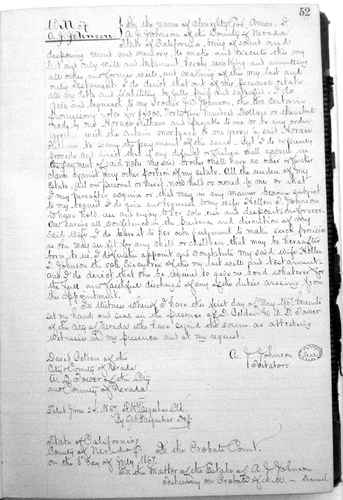 52
Will of
A. J. Johnson
In the name of Almighty God Amen. I
A. J. Johnson of the County of Nevada
State of California, being of sound and
disposing mind and memory, do make and execute this my
last and only will and testament, hereby revoking and annulling
all other and former wills, and making of this my last and
only testament. I do direct that out of my personal estate
all my debts and liability be fully paid and satisfied. I do
give and bequeath to my brother J. C. Johnson, the two certain
promissory notes for $1400. Fourteen Hundred Dollars or
made by one Horace Kilham and payable to me or to my order
together with the certain mortgage to me given by said Horace
Kilham to secure the payment of the same. But I do expressly
provide and direct that if any default or failure shall accrue in
the payment of said notes my said brother shall have no other or further
claim against any other portion of my estate. All the residue of my
Estate, all and personal or mixed now held or owned by me or that
I may hereafter acquire or that may in any manner become subject
to my bequest I do give and bequeath to my wife Hellen E. Johnson
to have, hold, use and enjoy to her sole use and disposition forever.
And having all confidence in the business and discretion of my
said wife I do leave it to her own judgment to make such provision
as she may see fit for any child or children that may be hereafter
born to us. I do further appoint and constitute my said wife Hellen
E. Johnson the sole Executrix of this my last will and testament
and I do direct that she be required to give no bond whatever for
the full and faithful discharge of any of the duties arising from
this appointment.
In Witness whereof I have this first day of May 1867 hereunto
set my hand and seal in the presence of D. Belden & A. D. Tower
of the City of Nevada who have signed the same as attesting
witnesses in my presence and at my request.
David Belden of the
City & County of Nevada
A. D. Tower of the City
and County of Nevada
A. J. Johnson
Testator
Filed June 24, 1867. R. H. Farquhar Clk
By Farquhar Dep
State of California
County of Nevada
In the Probate Court.
on the 8 day of July 1867
In the Matter of the Estate of A. J. Johnson
Testimony on Probate of Will - Deceased